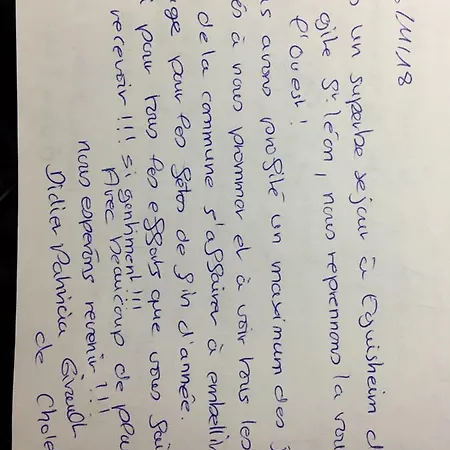 /11/18
un superbe sejour à Eguisheim d
gite St. Léon, nous reprenons la rou
l'Ouest !
s avons profité un maximum des
és à nous promener et à voir tous les
de la commune s'affairer à embelli
ge pour les fêtes de fin d'année.
pour tous les efforts que vous fai
recevoir !!! si gentiment !!!
Avec beaucoup de plai
nous espérons revenir !!!
Didier Patricia Girault
de Chole